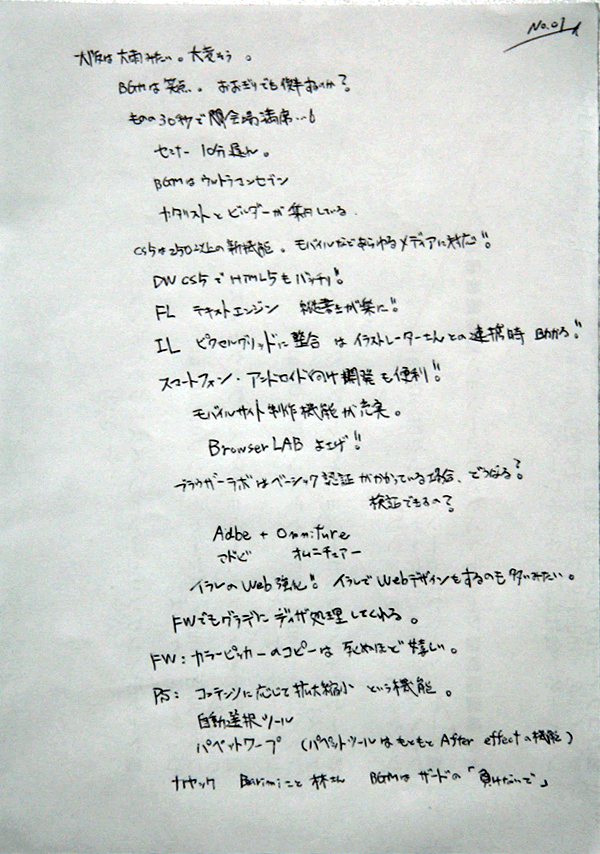 No.01
大阪は大雨みたい。大変そう。
BGMは笑点。おおぎりでも披露するのか?
ものの30秒で開会場満席…!
セミナー 10分遅れ。
BGMはウルトラマンセブン
ナタリストとビルダーが集日している
CS5は250以上の新機能。モバイルなどあらゆるメディアに対応!!
DW CS5でHTML5もバッチリ!
FL テキストエンジン 縦書きが楽に!!
IL ピクセルグリッドに整合 はイラストレーターさんとの連携時 助かる!!
スマートフォン・アンドロイド向け開発も便利!!
モバイルサイト制作機能が充実。
Browser LAB よさげ!!
ブラウザーラボはベーシック認証がかかっている場合、どうなる?
検証できるの?
Adbe + Omniture
アドビ オムニチュアー
イラレのWeb強化!! イラレでWebデザインをするのも多いみたい。
FWでもグラデにディザ処理してくれる。
FW:カラーピッカーのコピーは死ぬほど嬉しい。
PS: コンテンツに応じて拡大縮小 という機能。
自動選択ツール
パペットワープ (パペットツールはもともと After effectの機能)
カヤック Barimiこと 林さん BGMは ザードの「負けないで」